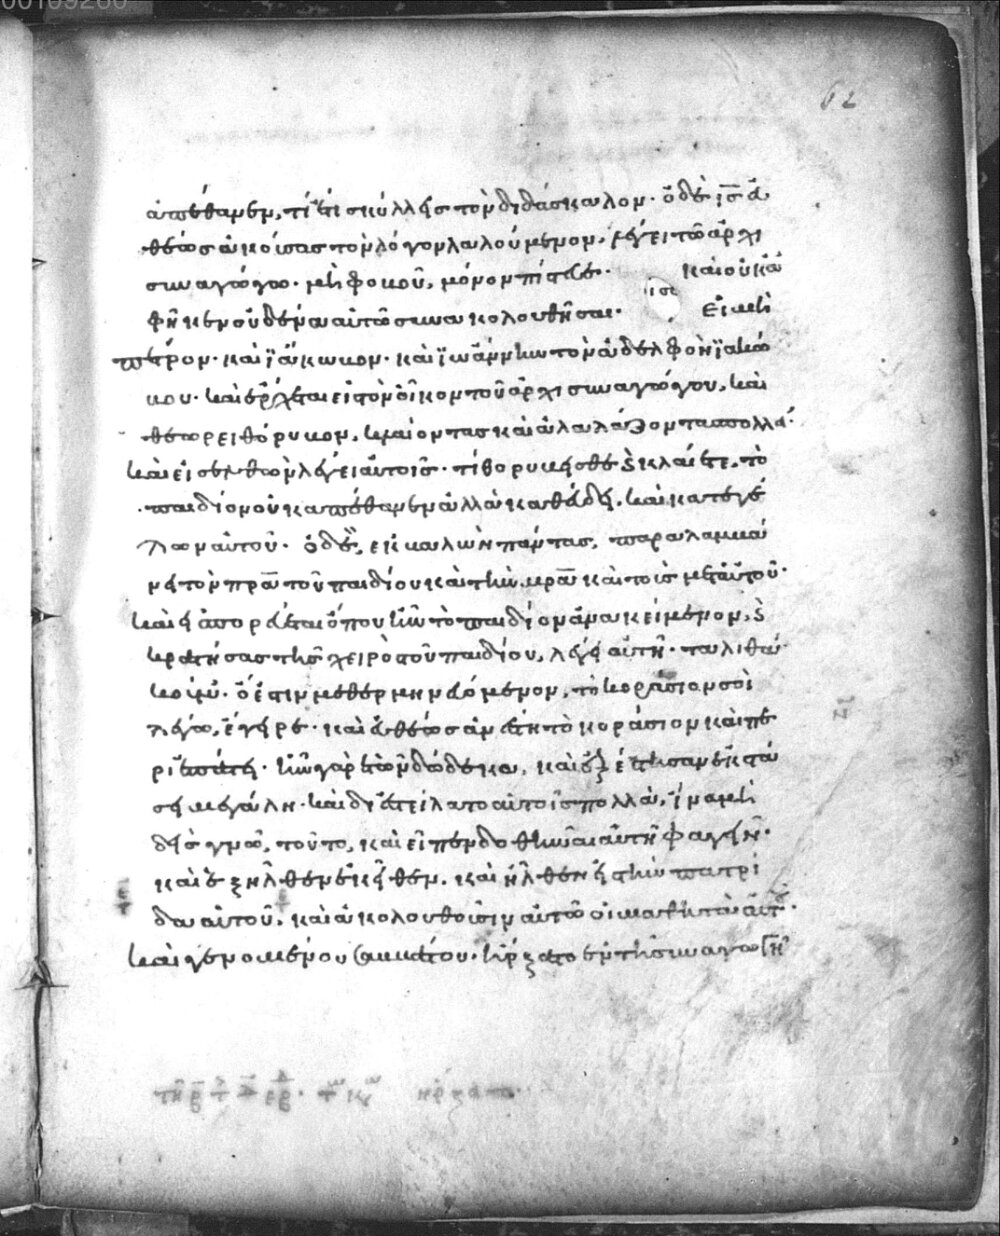 00109260
62
ἀπέθανεν, τί ἔτι σκύλλεις τὸν διδάσκαλον· ὁ δὲ ι̅ς̅ εὐ
θέως ἀκούσας τὸν λόγον λαλούμενον, λέγει τῶ ἀρχι
συναγώγω· μὴ φοβοῦ, μόνον πίστευε· καὶ οὐκ ἀ
φῆκεν οὐδένα αὐτῶ συνακολουθῆσαι· εἰ μὴ
πέτρον· καὶ ἰάκωβον· καὶ ἰωάννην τὸν ἀδελφὸν ἰακώ
βου· καὶ ἔρχεται εἰς τὸν οἶκον τοῦ ἀρχισυναγώγου, καὶ
θεωρεῖ θόρυβον, κλαίοντας καὶ ἀλαλάζοντας πολλά·
καὶ εἰσελθὼν λέγει αὐτοῖς· τί θορυβεῖσθε ϗ κλαίετε, τὸ
παιδίον οὐκ ἀπέθανεν ἀλλὰ καθεύδει, καὶ κατεγέ
λων αὐτοῦ· ὁ δὲ, ἐκβαλὼν πάντας, παραλαμβά
νει τὸν π̅ρ̅α̅ τοῦ παιδίου καὶ τὴν μ̅ρ̅α̅ καὶ τοὺς μετ' αὐτοῦ·
καὶ εἰσπορεύεται ὅπου ἦν τὸ παιδίον ἀνακείμενον, ϗ
κρατήσας τῆς χειρὸς τοῦ παιδίου, λέγει αὐτῆ· ταλιθὰ
κοῦμι· ὅ ἐστιν μεθερμηνευόμενον, τὸ κοράσιον σοὶ
λέγω, ἔγειρε· καὶ εὐθέως ἀνέστη τὸ κοράσιον καὶ πε
ριεπάτει· ἦν γὰρ ἐτῶν δώδεκα, καὶ ἐξέστησαν ἐκστά
σει μεγάλη· καὶ διεστείλατο αὐτοῖς πολλὰ, ἵνα μὴ
δεὶς γνῶ, τοῦτο, καὶ εἶπεν δοθῆναι αὐτῆ φαγεῖν·
καὶ ἐξῆλθεν ἐκεῖθεν, καὶ ἦλθεν εἰς τὴν πατρί
δα αὐτοῦ, καὶ ἀκολουθοῦσιν αὐτῶ οἱ μαθηταὶ αὐτοῦ·
καὶ γενομένου σαββάτου· ἤρξατο ἐν τῆ συναγωγῆ